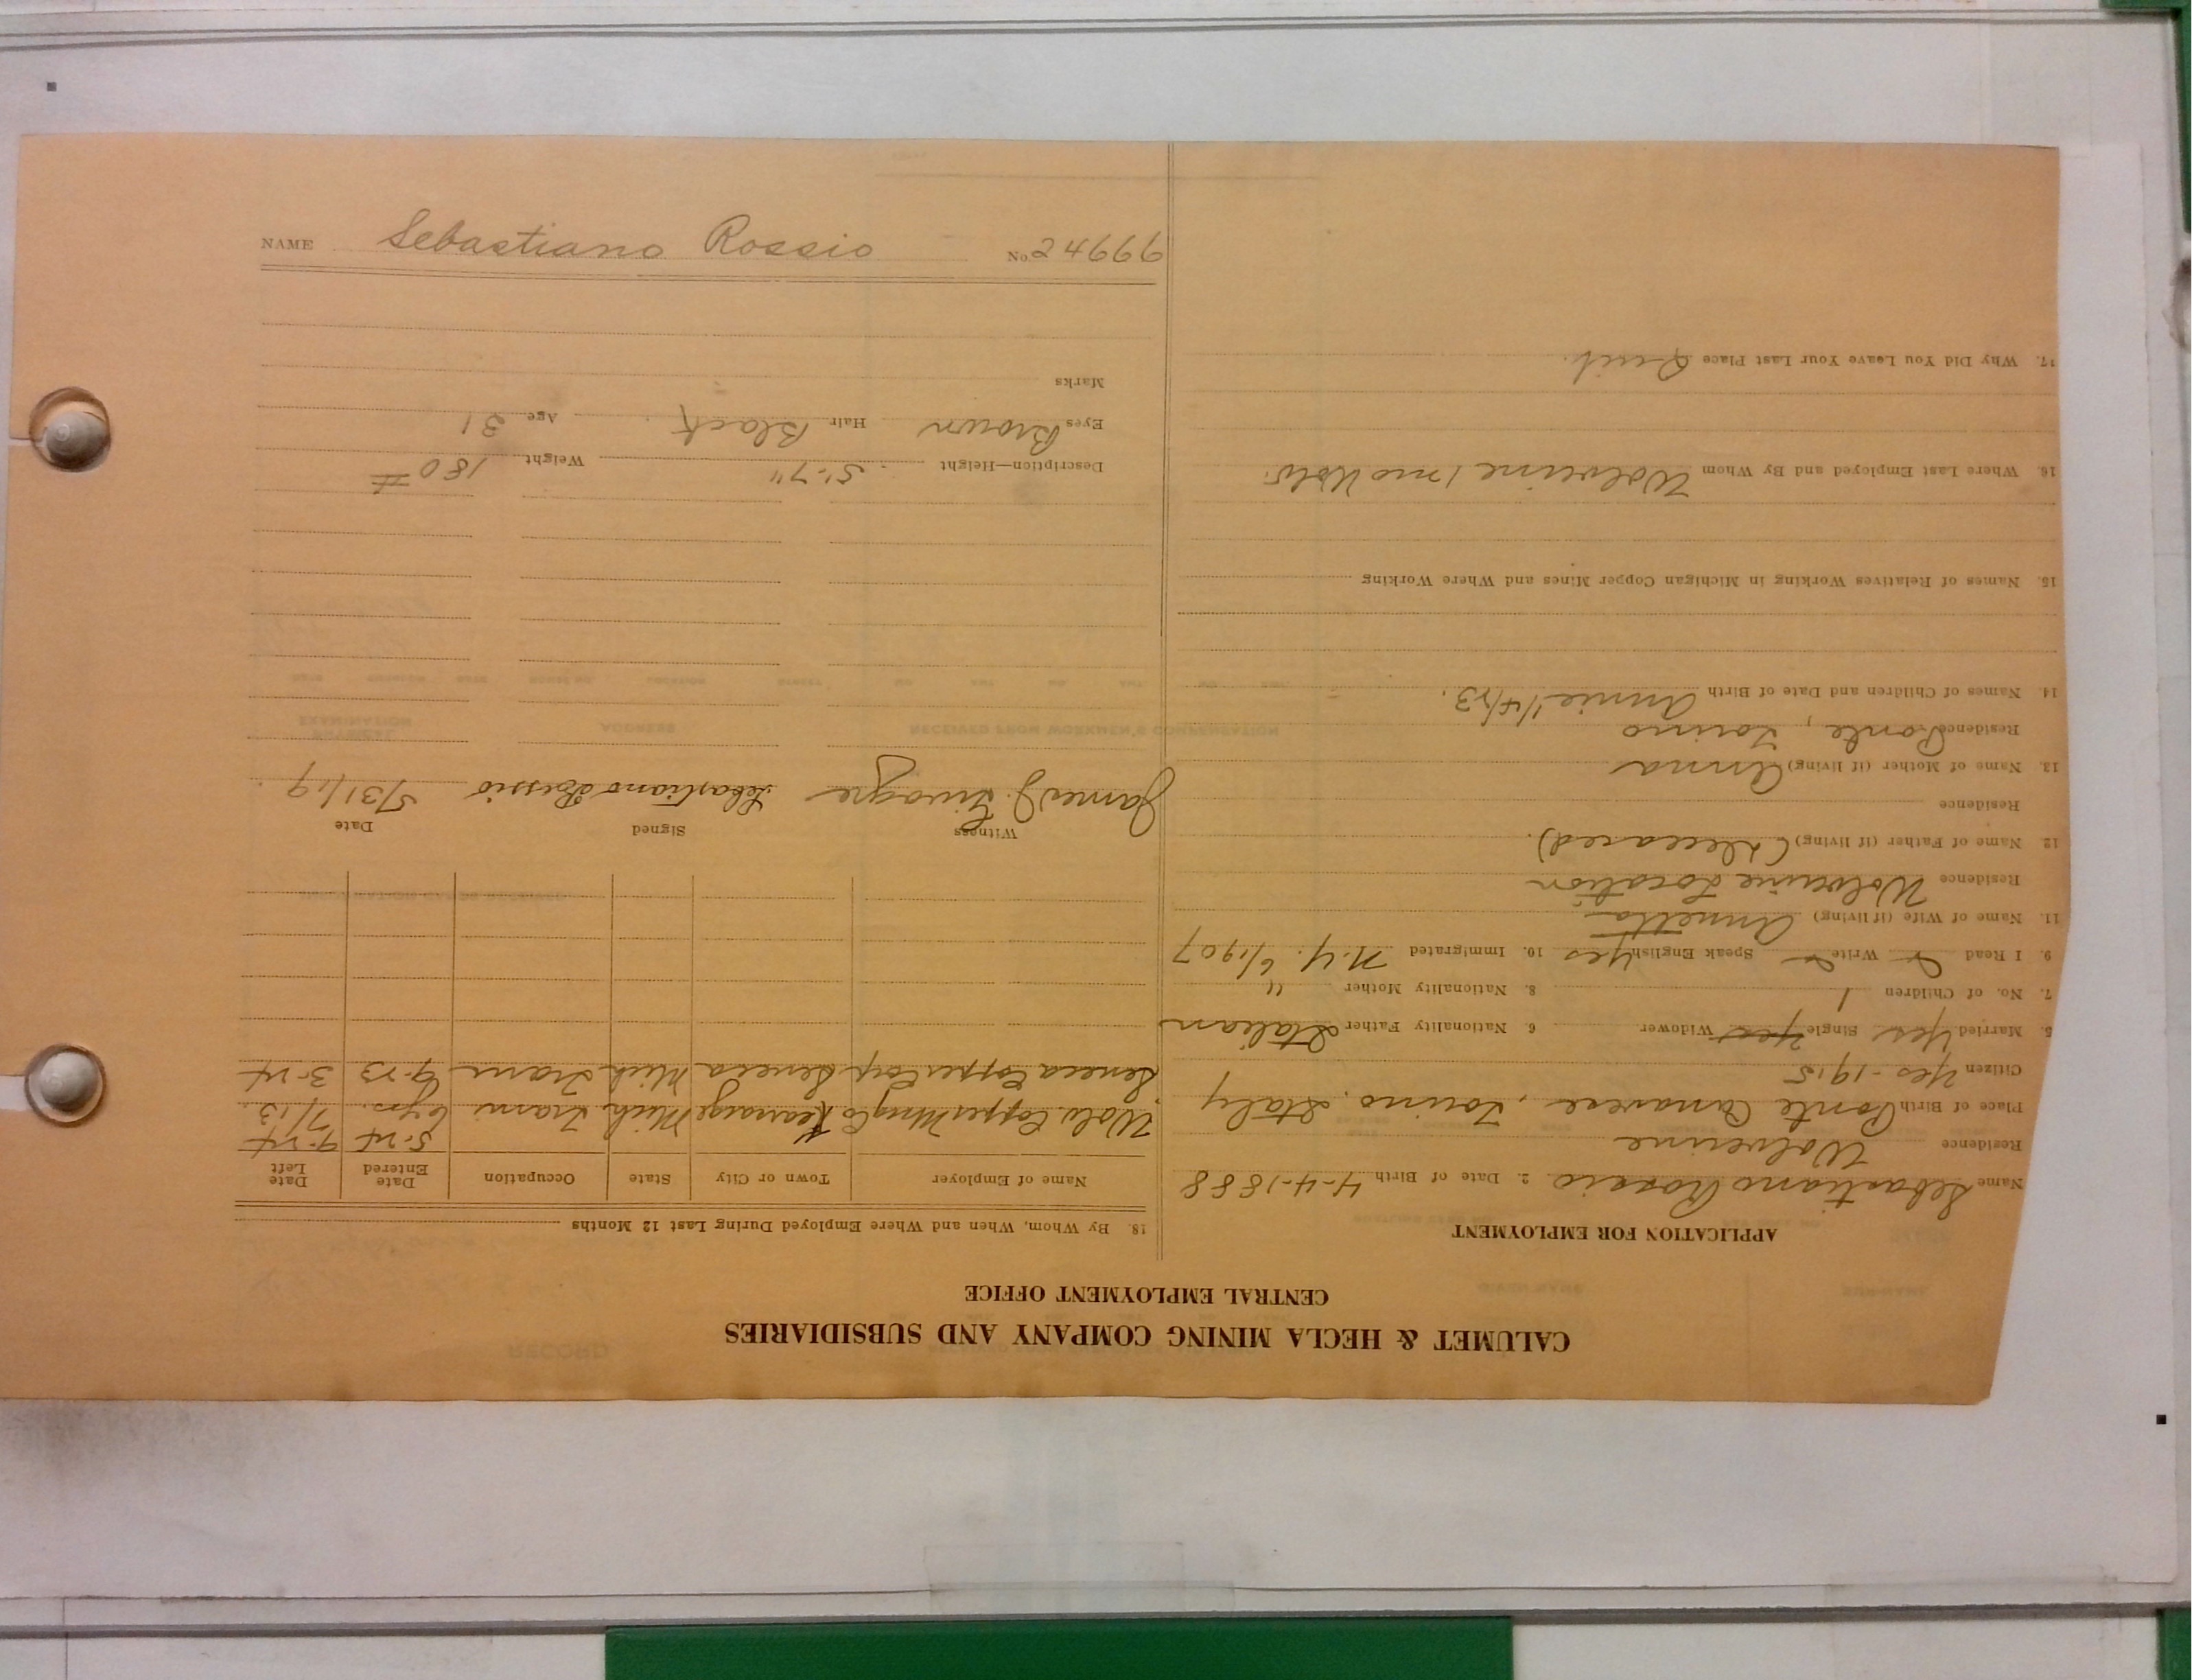 CALUMET & HECLA MINING COMPANY AND SUBSIDIARIES
CENTRAL EMPLOYMENT OFFICE
APPLICATION FOR EMPLOYMENT
Name Sebastiano Rossio 2. Date of Birth 4-4-1888
Residence Wolverine
Place of Birth Ponte Canavese, Torino. Italy
Citizen Yes - 1915
5. Married Yes Single Yes Widower 6. Nationality Father Italian
7. No. of Children 1 8. Nationality Mother "
9. I Read Write Speak English Yes 10. Immigrated N.Y. 6/1907
11. Name of Wife (if living) Annetta
Residence Wolverine Location
12. Name of Father (if living) (Deceased).
Residence
13. Name of Mother (if living) Anna
Residence Ponte, Torino
14. Names of Children and Date of Birth Annie 1/4/23.
15. Names of Relatives Working in Michigan Copper Mines and Where Working
16. Where Last Employed and By Whom Wolverine 1 mo Wolv.
17. Why Did You Leave Your Last Place Quit.
18. By Whom, When and Where Employed During Last 12 Months
Name of Employer Town or City State Occupation Date Entered Date Left
5-24 9-24
Wolv. Copper Mng Co Kearsarge Mich Tram 6 yrs. 7/13.
Seneca Copper Corp Seneca Mich Tram 9-23 3-24
Witness Signed Date
James J. Sebastiano Rossio 5/31/19.
Description—Height 5'-7" Weight 180 #
Eyes Brown Hair Black. Age 31
Marks
NAME Sebastiano Rossio No. 24669